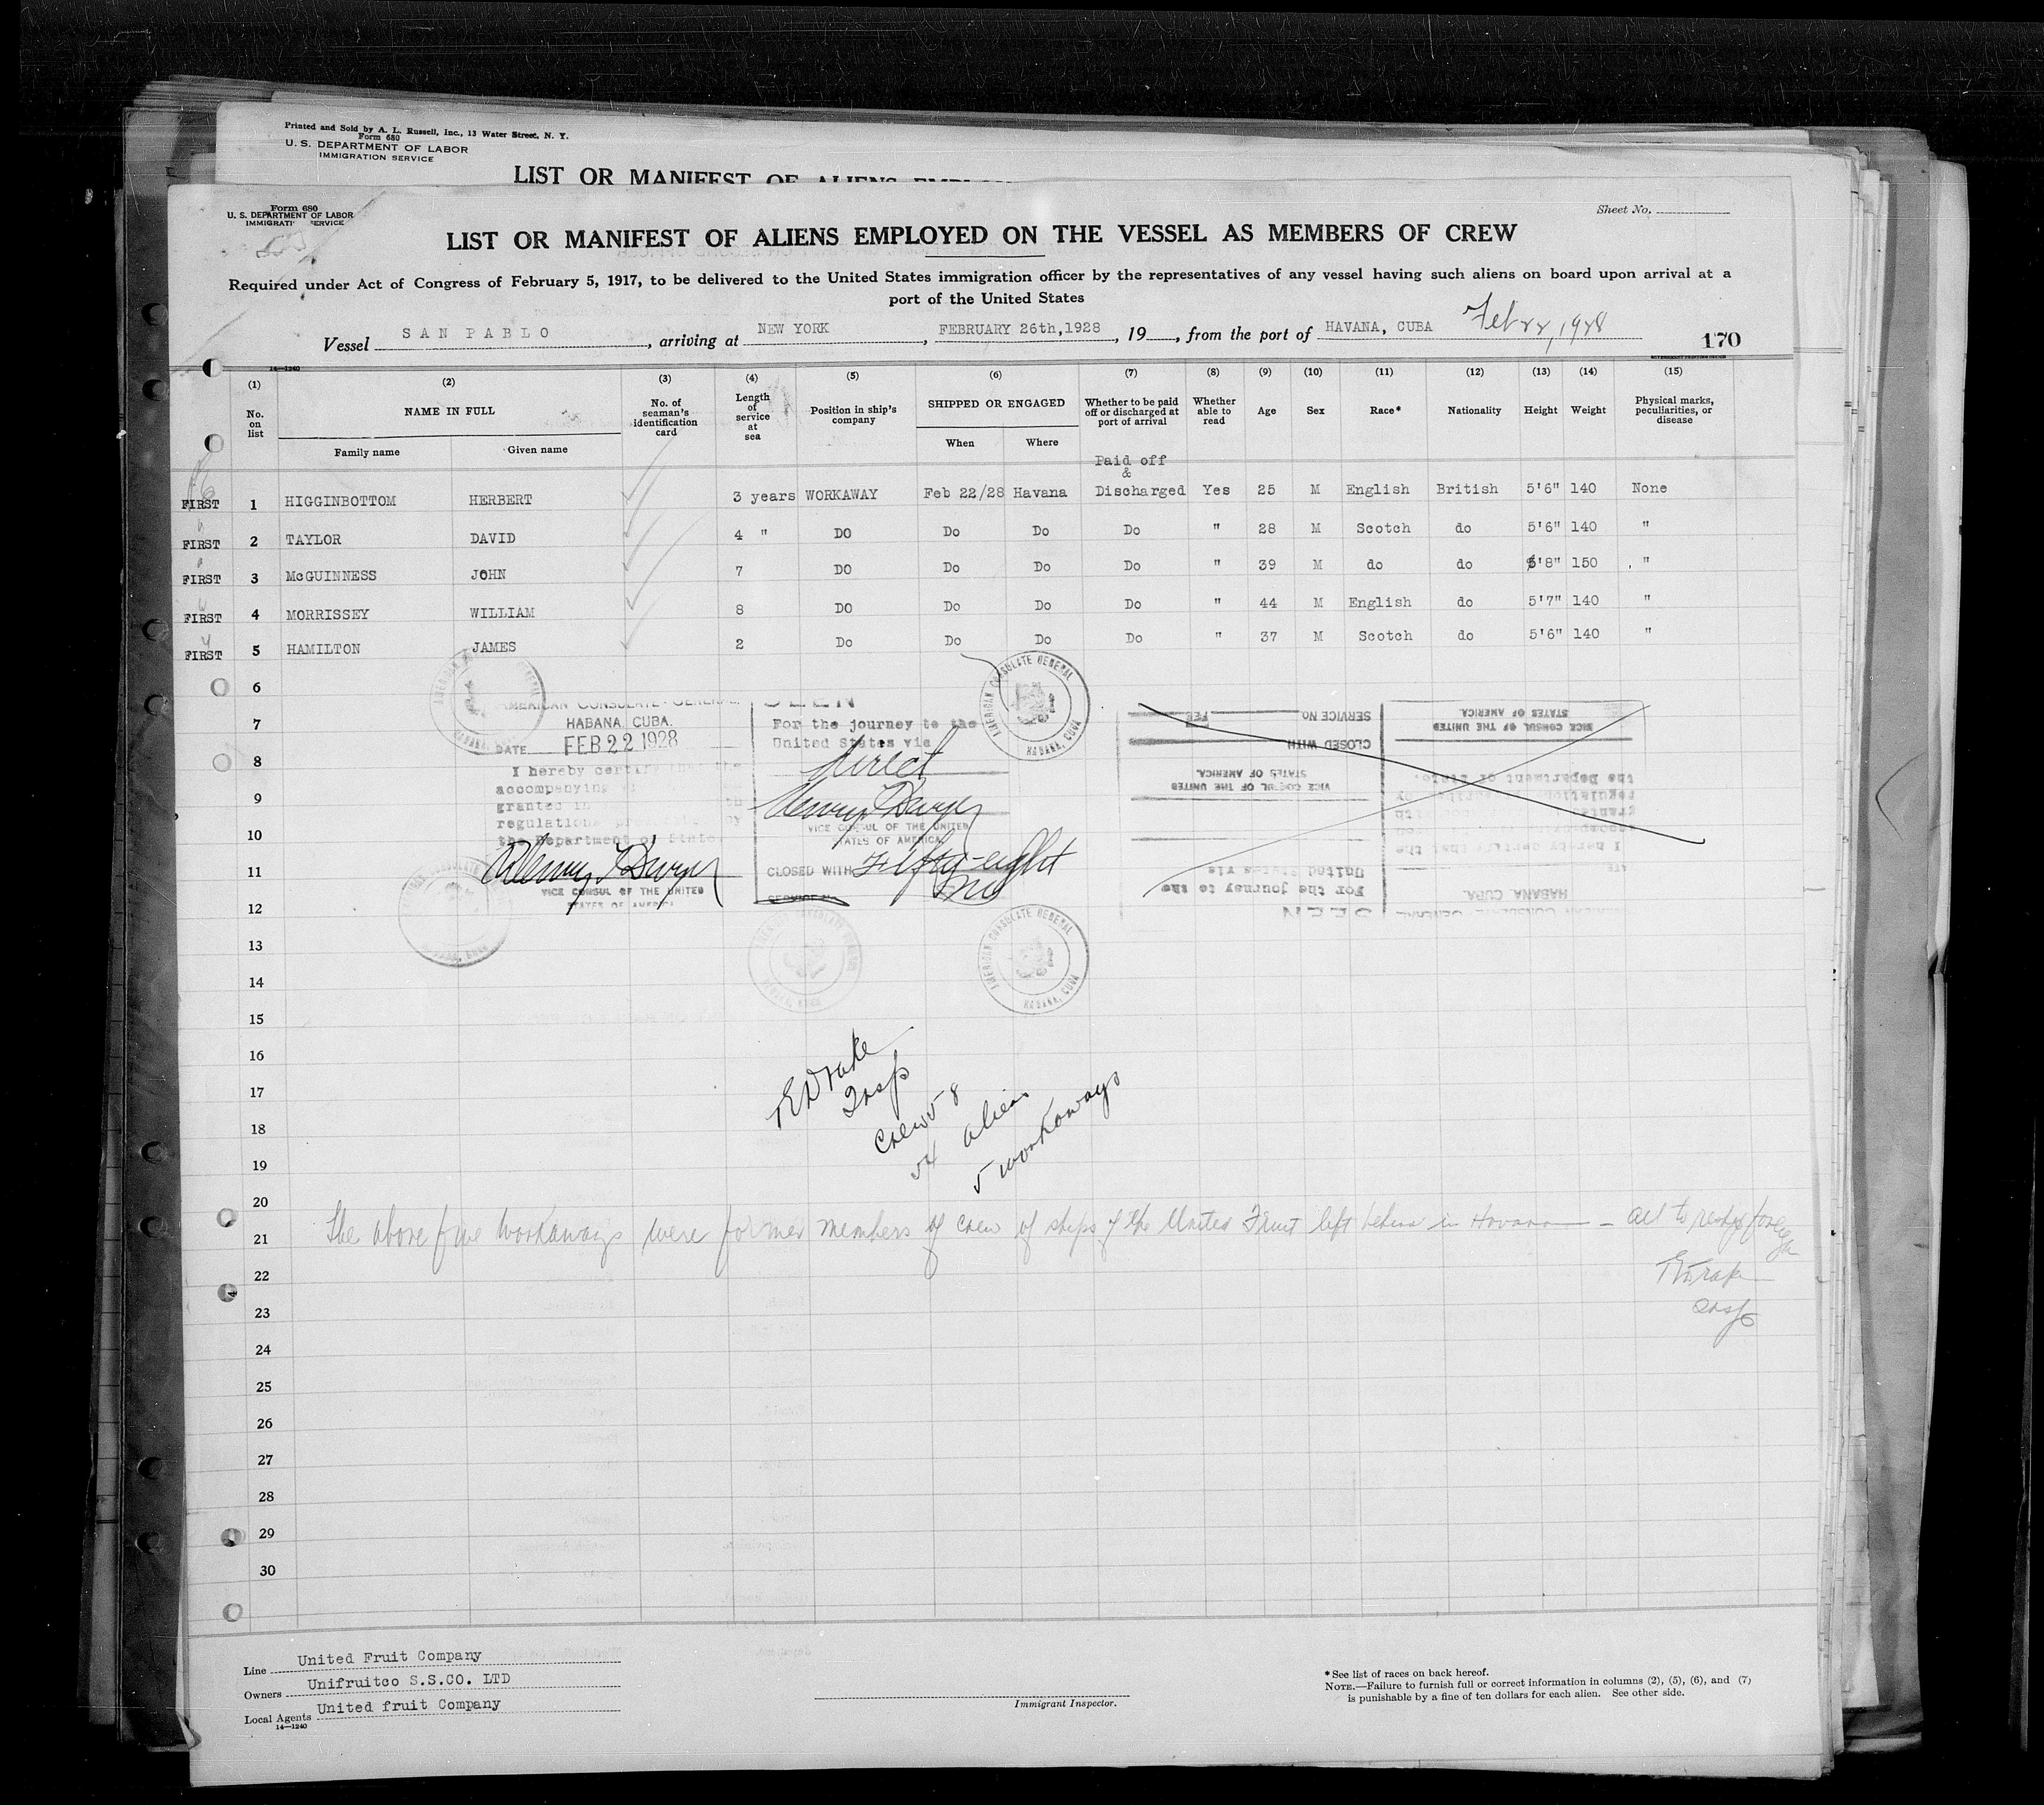 Printed and Sold by A. L. Russell, Inc., 13 Water Street, N. Y.
Form 680
U. S. DEPARTMENT OF LABOR
IMMIGRATION SERVICE
LIST OR MANIFEST OF ALIENS
Form 680
U. S. DEPARTMENT OF LABOR
IMMIGRATI SERVICE
Sheet No.
LIST OR MANIFEST OF ALIENS EMPLOYED ON THE VESSEL AS MEMBERS OF CREW
Required under Act of Congress of February 5, 1917, to be delivered to the United States immigration officer by the representatives of any vessel having such aliens on board upon arrival at a
port of the United States
Vessel SAN PABLO, arriving at NEW YORK, FEBRUARY 26th,1928, 19, from the port of HAVANA, CUBA Feb 22, 1928
170
14—1240
(1) (2) (3) (4) (5) (6) (7) (8) (9) (10) (11) (12) (13) (14) (15)
No. on list NAME IN FULL No. of seaman's identification card Length of service at sea Position in ship's company SHIPPED OR ENGAGED Whether to be paid off or discharged at port of arrival Whether able to read Age Sex Race* Nationality Height Weight Physical marks, peculiarities, or disease
Family name Given name When Where
Paid off
&
FIRST 1 HIGGINBOTTOM HERBERT 3 years WORKAWAY Feb 22/28 Havana Discharged Yes 25 M English British 5'6" 140 None
FIRST 2 TAYLOR DAVID 4 " DO Do Do Do " 28 M Scotch do 5'6" 140 "
FIRST 3 McGUINNESS JOHN 7 DO Do Do Do " 39 M do do 5'8" 150 "
FIRST 4 MORRISSEY WILLIAM 8 DO Do Do Do " 44 M English do 5'7" 140 "
FIRST 5 HAMILTON JAMES 2 Do Do Do Do " 37 M Scotch do 5'6" 140 "
6
7
8
9
10
11
12
13
14
15
16
17
18
19
20
21
22
23
24
25
26
27
28
29
30
AMERICAN CONSULATE GENERAL
HABANA, CUBA.
DATE FEB 22 1928
I hereby certify that the
accompanying
granted in
regulations
the Department of State
VICE CONSUL OF THE UNITED
STATES OF AMERICA
SEEN
For the journey to the
United States via
direct
VICE CONSUL OF THE UNITED
STATES OF AMERICA.
CLOSED WITH Fifty-eight
SERVICE No
AMERICAN CONSULATE GENERAL
HABANA, CUBA
AMERICAN CONSULATE GENERAL
HABANA, CUBA
SERVICE No FEB
CLOSED WITH
VICE CONSUL OF THE UNITED
STATES OF AMERICA.
For the journey to the
United States via
SEEN
VICE CONSUL OF THE UNITED
STATES OF AMERICA.
the Department of State.
I hereby certify that the
HABANA, CUBA.
E Drake
Insp
Crew 58
54 aliens
5 workaways
The above five workaways were former members of crew of ships of the United Fruit left behind in Havana — all to reship foreign
Insp
Line United Fruit Company
Owners Unifruitco S.S.CO. LTD
Local Agents United fruit Company
14—1240
Immigrant Inspector.
* See list of races on back hereof.
NOTE.—Failure to furnish full or correct information in columns (2), (5), (6), and (7)
is punishable by a fine of ten dollars for each alien. See other side.